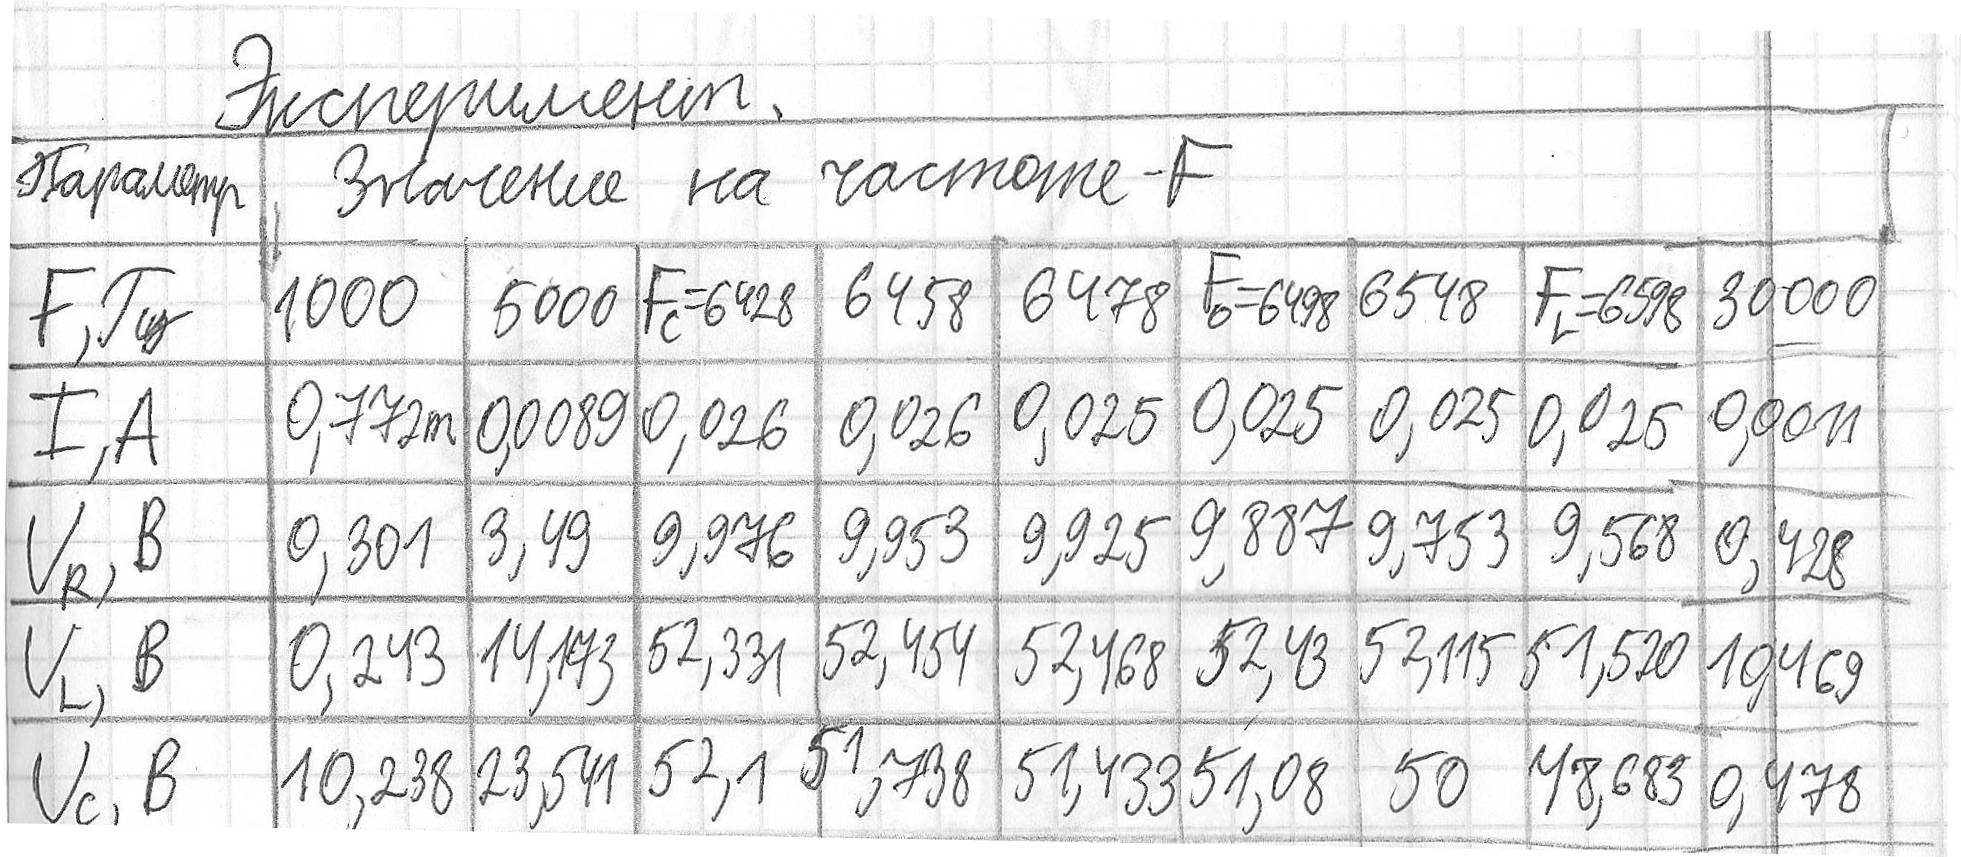 Эксперимент.
Параметр Значение на частоте - F
F, Гц 1000 5000 Fc=6428 6458 6478 F0=6498 6548 FL=6598 30000
I, A 0,772m 0,0089 0,026 0,026 0,025 0,025 0,025 0,025 0,0011
UR, В 0,301 3,49 9,976 9,953 9,925 9,887 9,753 9,568 0,428
UL, В 0,243 14,173 52,331 52,454 52,468 52,43 52,115 51,520 10,469
Uc, В 10,238 23,541 52,1 51,738 51,433 51,08 50 48,683 0,478